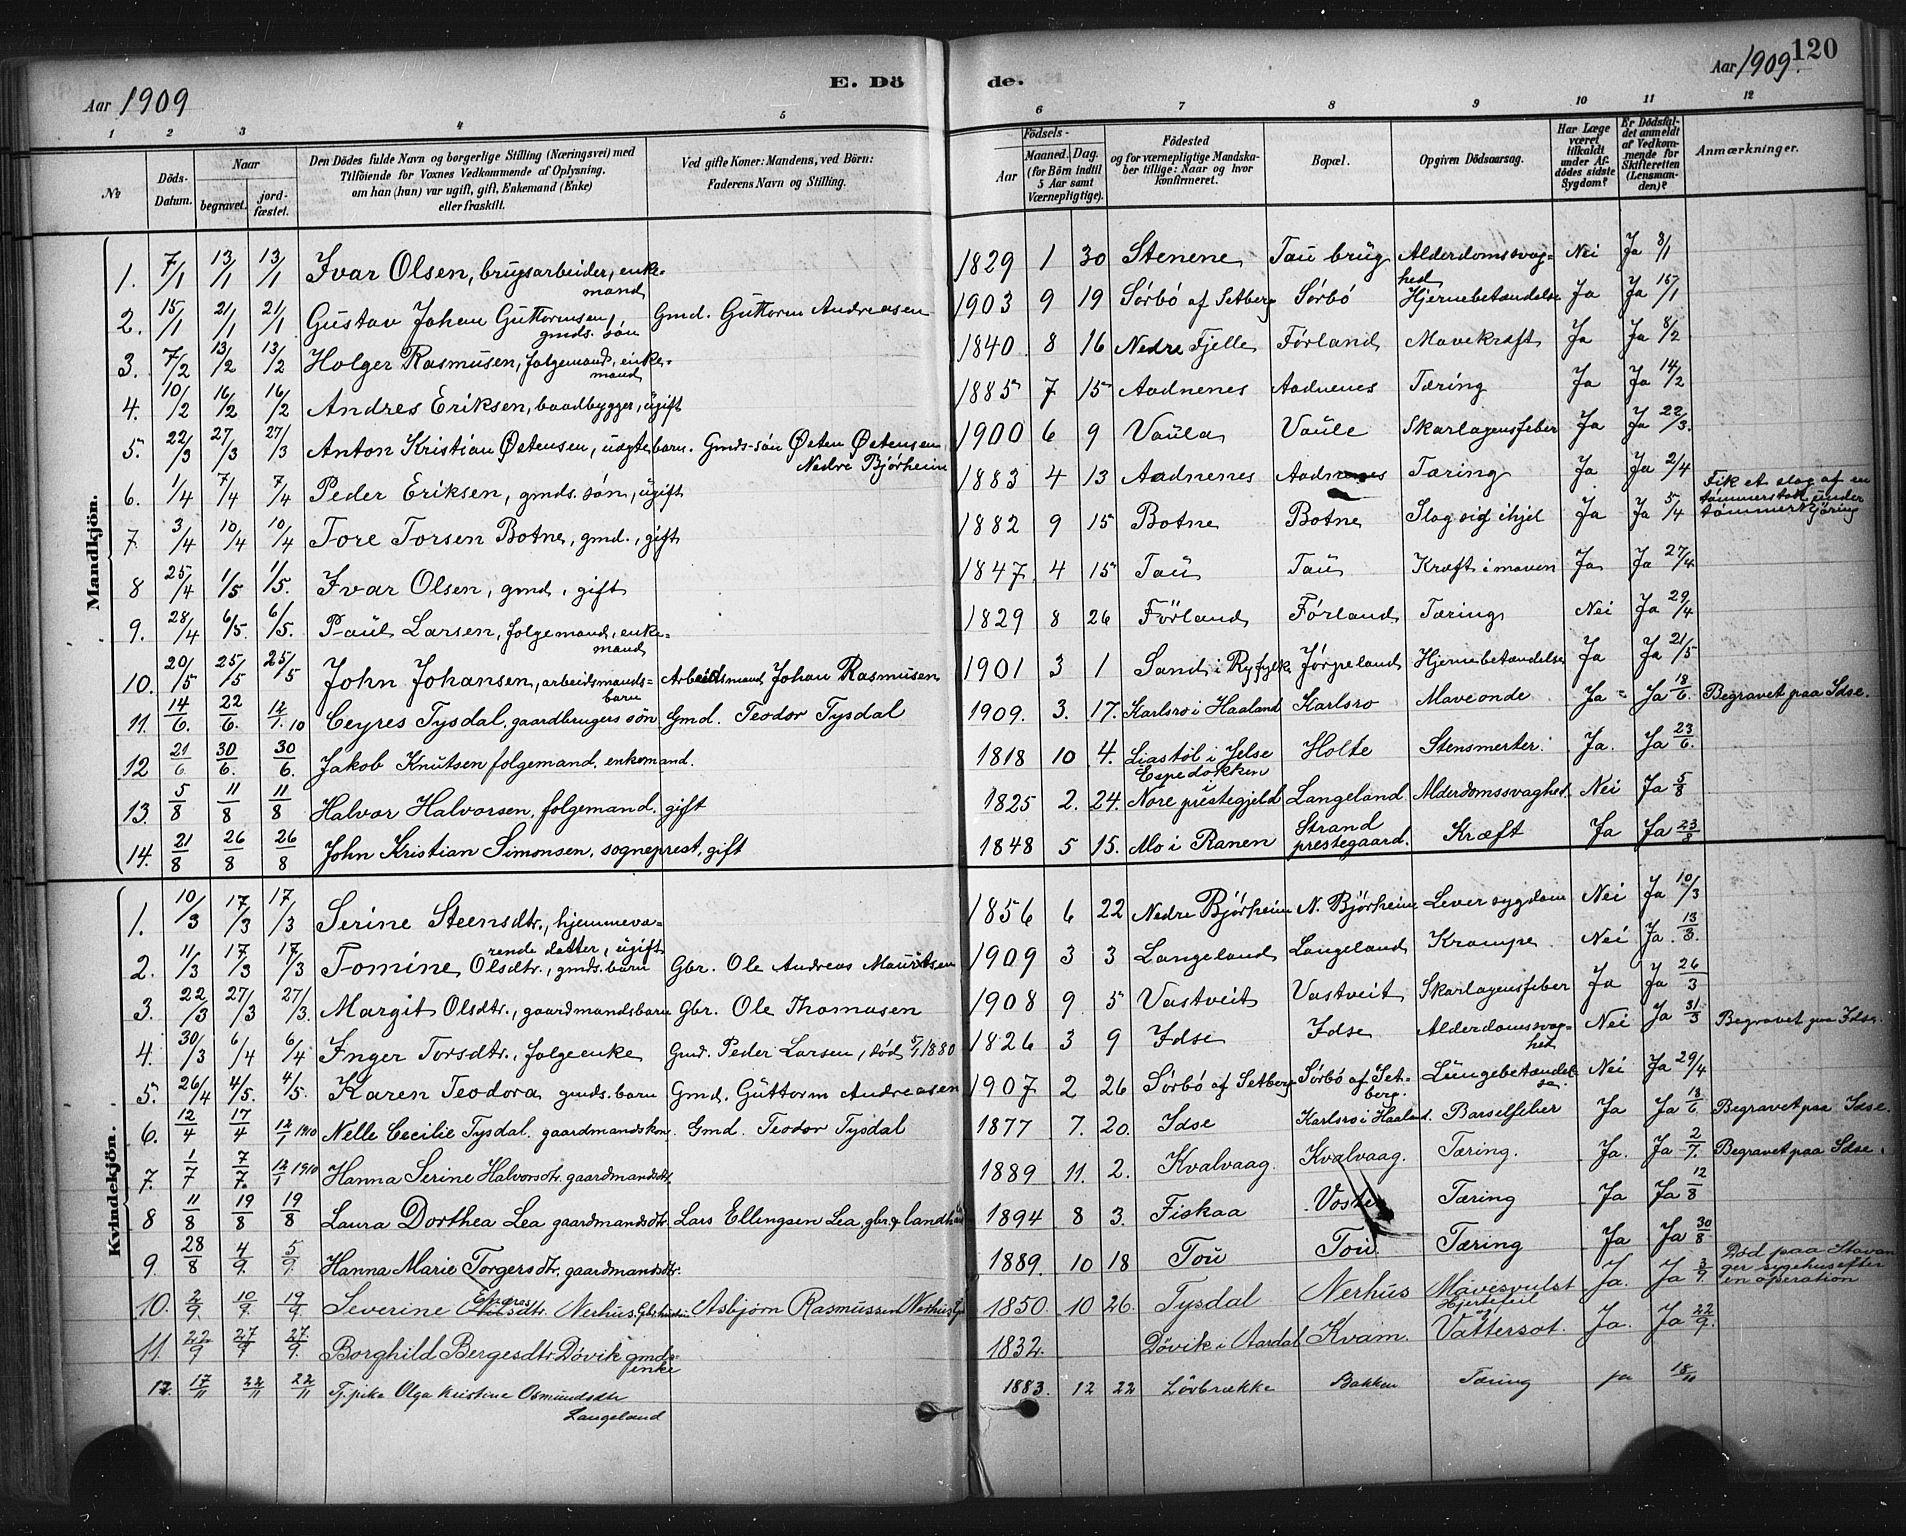 Aar 1909
E. Dö
de.
Aar 1909.
120
1 2 3 4 5 6 7 8 9 10 11 12
№
Döds-Datum.
Naar
begravet.
jordfæstet.
Den Dödes fulde Navn og borgerlige Stilling (Næringsvei) med
Tilföiende for Voxnes Vedkommende af Oplysning,
om han (hun) var ugift, gift, Enkemand (Enke)
eller fraskilt.
Ved gifte Koner: Mandens, ved Börn:
Faderens Navn og Stilling.
Födsels-
Aar
Maaned. Dag.
(for Börn indtil
5 Aar samt
Værnepligtige).
Födested
og for værnepligtige Mandska-
ber tillige: Naar og hvor
konfirmeret.
Bopæl.
Opgiven Dödsaarsag.
Har Læge
været
tilkaldt
under Af-
dödes sidste
Sygdom?
Er Dödsfal-
det anmeldt
af Vedkom-
mende for
Skifteretten
(Lensman-
den)?
Anmærkninger.
Mandkjön.
1. 7/1 13/1 13/1 Ivar Olsen, brugsarbeider, enke-
mand
1829 1 30 Stenene Tau brug Alderdomssvag-
hed Nei Ja 8/1
2. 15/1 21/1 21/1 Gustav Johan Guttormsen,
gmds. søn Gmd. Guttorm Andreasen 1903 9 19 Sörbö af Setberg Sörbö Hjernebetændelse Ja Ja 15/1
3. 7/2 13/2 13/2 Holger Rasmusen, folgemand, enke-
mand 1840 8 16 Nedre Fjelle Förland Mavekræft Ja Ja 8/2
4. 10/2 16/2 16/2 Andres Eriksen, baadbygger, ugift 1885 7 15 Aadnenes Aadnenes Tæring Ja Ja 14/2
5. 22/3 27/3 27/3 Anton Kristian Østensen, uægte barn. Gmds-søn Østen Østensen
Nedre Bjørheim 1900 6 9 Vaula Vaule Skarlagensfeber Ja Ja 22/3.
6. 1/4 7/4 7/4 Peder Eriksen, gmds. søn, ugift 1883 4 13 Aadnenes Aadnenes Tæring Ja Ja 2/4
7. 3/4 10/4 10/4 Tore Torsen Botne, gmd., gift 1882 9 15 Botne Botne Slog sig ihjel Ja Ja 5/4 Fik et slag af en
tømmerstok under
tømmerkjøring
8 25/4 1/5 1/5. Ivar Olsen, gmd, gift 1847 4 15 Tau Tau Kræft i maven Ja Ja 27/4
9. 28/4 6/5. 6/5. Paul Larsen, folgemand, enke-
mand 1829 8 26 Förland Förland Tæring Nei Ja 29/4
10. 20/5 25/5 25/5 John Johansen, arbeidsmands-
barn Arbeidsmand Johan Rasmusen 1901 3 1 Sand i Ryfylke Jørpeland Hjernebetændelse Ja Ja 21/5
11. 14/6. 22/6. 12/1.10 Ceyres Tysdal, gaardbrugers søn Gmd. Teodor Tysdal 1909. 3. 17. Karlsro i Haaland Karlsro Maveonde Ja Ja 18/6. Begravet paa Idse.
12 21/6 30/6. 30/6. Jakob Knutsen folgemand. enkemand. 1818 10 4. Liastöl i Jelse Holte Stensmerter. Ja. Ja 23/6.
13. 5/8 11/8 11/8 Halvor Halvorsen, folgemand. gift 1825 2. 24. Espedokken
i
Nore prestegjeld Langeland Alderdomssvaghed. Nei Ja 5/8
14. 21/8 26/8 26/8 John Kristian Simonsen, sogneprest, gift 1848 5 15. Mo i Ranen Strand
prestegaard. Kræft Ja Ja 23/8
Kvindekjön.
1. 10/3 17/3 17/3 Serine Steensdtr., hjemmevæ-
rende datter, ugift 1856 6 22 Nedre Bjørheim N. Bjørheim Leversygdom Nei Ja 10/3
2. 11/3 17/3 17/3 Tomine Olsdtr., gmds. barn Gbr. Ole Andreas Mauritsen 1909 3 3 Langeland Langeland Krampe Nei Ja. 13/3.
3. 22/3 27/3 27/3. Margit Olsdtr., gaardmandsbarn Gbr. Ole Thomasen 1908 9 5 Vastveit Vastveit Skarlagensfeber Ja Ja 26/3
4. 30/3 6/4 6/4 Inger Torsdtr., folgeenke Gmd. Peder Larsen, død 5/7 1880 1826 3 9 Idse Idse Alderdomssvag-
hed Nei Ja 31/3 Begravet paa Idse.
5. 26/4 4/5. 4/5. Karen Teodora gmds. barn Gmd. Guttorm Andreasen 1907. 2 26 Sörbö af Setberg Sörbö af Set-
berg. Lungebetændel-
se. Nei Ja 29/4
6. 12/4 17/4 12/1 1910 Nelle Cecilie Tysdal. gaardmandskone. Gmd. Teodor Tysdal 1877 7. 20. Idse Karlsro i Haaland. Barselfeber Ja Ja 18/6 Begravet paa Idse.
7. 1/7 7/7. 12/1 1910 Hanna Serine Halvorsdtr. gaardmandsdtr. 1889 11. 2. Kvalvaag. Kvalvaag. Tæring. Ja. Ja 2/7. Begravet paa Idse.
8 11/8 19/8 19/8 Laura Dorthea Lea gaardmandsdtr. Lars Ellingsen Lea, gbr. & landh. 1894 8 3. Fiskaa Voster Tæring Ja Ja 12/8
9. 28/8 4/9. 5/9. Hanna Marie Torgersdtr. gaardmandsdtr. 1889. 10 18 Tou Tou Tæring Ja Ja 30/8
10. 2/9. 10/9. 19/9. Severine Endresdtr. Nerhus. Asbjörn Rasmussen Nerhus 1850. 10 26. Tysdal Nerhus Mavesvulst Ja. Ja 3/9. Død paa Stavan
ger sygehus efter
en operation
11. 22/9 27/9 27/9. Borghild Bergesdtr. Døvik gmds-
enke 1832. Døvik i Aardal Kvam. Hjertefeil
og
Vattersot. Ja. Ja 22/9.
12. 17/11 22/11 22/11 Tj. pike Olga Kristine Osmundsdtr
Langeland 1883. 12 22 Lövbrække Bakken Tæring ja 18/11